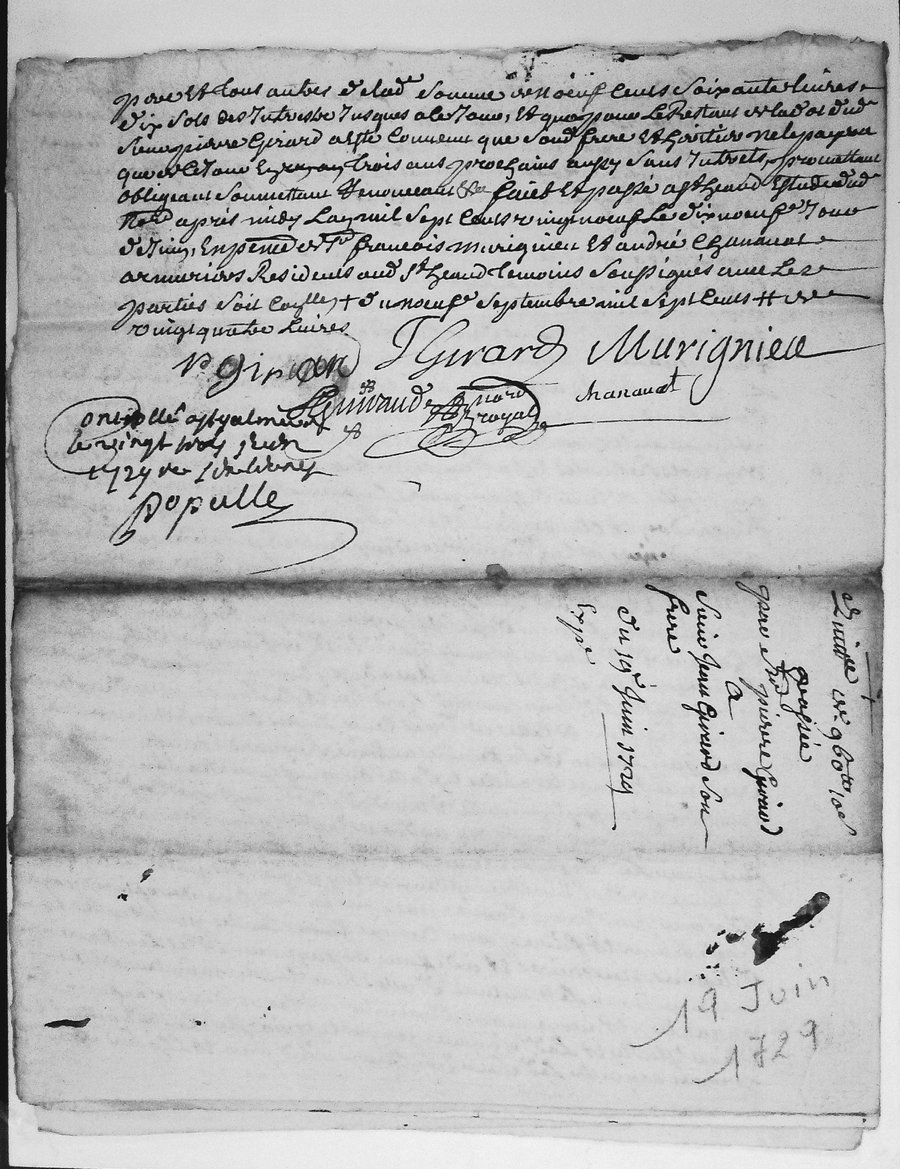 pere Et tous autres de lade somme de noeuf Cents Soixante livres
dix Sols des Interests Jusques a Ce Jour, Et quoy pour Le Restant de lad dot dud
Sieur pierre Girard a este Convenu que Sond frere Et heritier ne le payera
que de Ce Jour En trois ans prochains aussy Sans Interets promettant
obligeant Soumettant Renonceant &a faict Et passé a St heand Estude dud
Nore apres midy Lan mil Sept Cents vingt noeuf Le dix noeufe Jour
de Juin, En pnce de Sr francois Murignieu Et andré Chanavat
armuriers Residents aud St heand temoins Soussignés avec Les
parties Soit Con̄lle + du noeufe Septembre mil Sept Cents
vingt quatre Livres
P. Girard JGirard Murignieu
Guiraud Nore royal chanavat
Contrllé a St galmier
le vingt trois Juin
1729
Populle
Quitce de 960tt 10s
passée
par Sr pierre Girard
A
Sieur Jean Girard Son
frere
Du 19e Juin 1729
Expe
19 Juin
1729